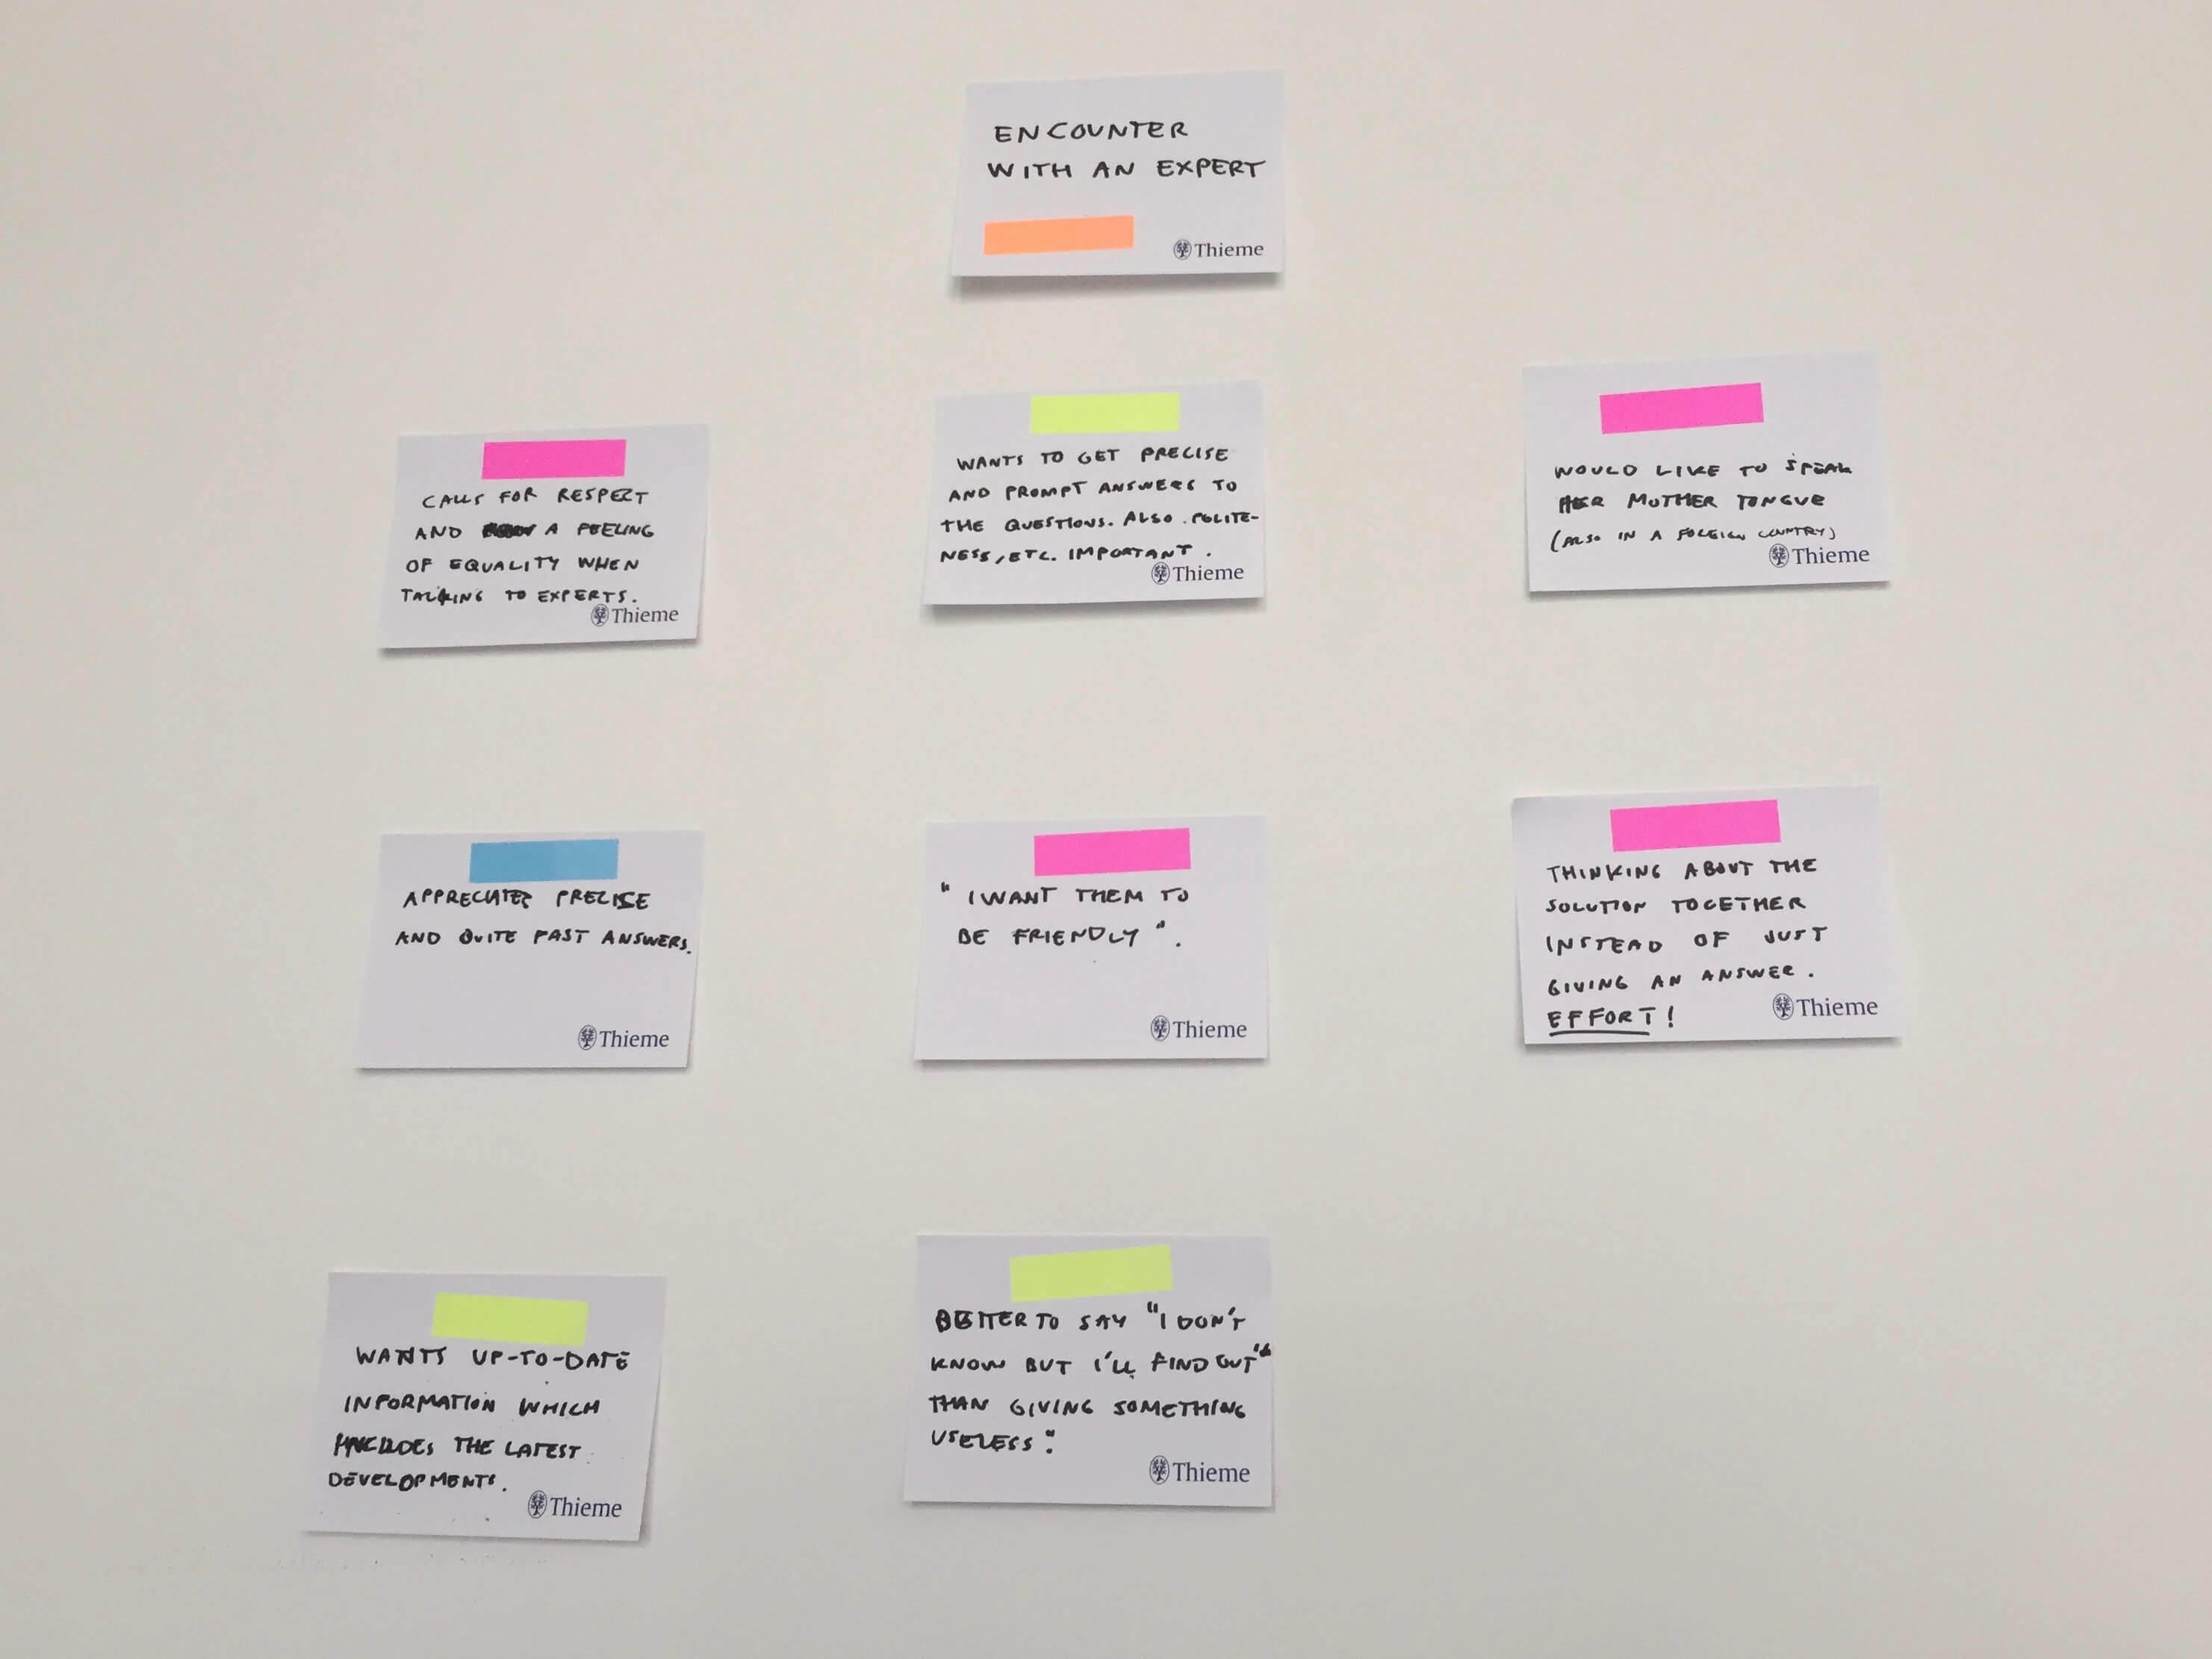 ENCOUNTER
WITH AN EXPERT
Thieme
CALLS FOR RESPECT
AND A FEELING
OF EQUALITY WHEN
TALKING TO EXPERTS.
Thieme
WANTS TO GET PRECISE
AND PROMPT ANSWERS TO
THE QUESTIONS. ALSO POLITE-
NESS, ETC. IMPORTANT.
Thieme
WOULD LIKE TO SPEAK
HER MOTHER TONGUE
(ALSO IN A FOREIGN COUNTRY)
Thieme
APPRECIATES PRECISE
AND QUITE FAST ANSWERS.
Thieme
" I WANT THEM TO
BE FRIENDLY ".
Thieme
THINKING ABOUT THE
SOLUTION TOGETHER
INSTEAD OF JUST
GIVING AN ANSWER.
EFFORT!
Thieme
WANTS UP-TO-DATE
INFORMATION WHICH
INCLUDES THE LATEST
DEVELOPMENTS.
Thieme
BETTER TO SAY "I DON'T
KNOW BUT I'LL FIND OUT"
THAN GIVING SOMETHING
USELESS."
Thieme